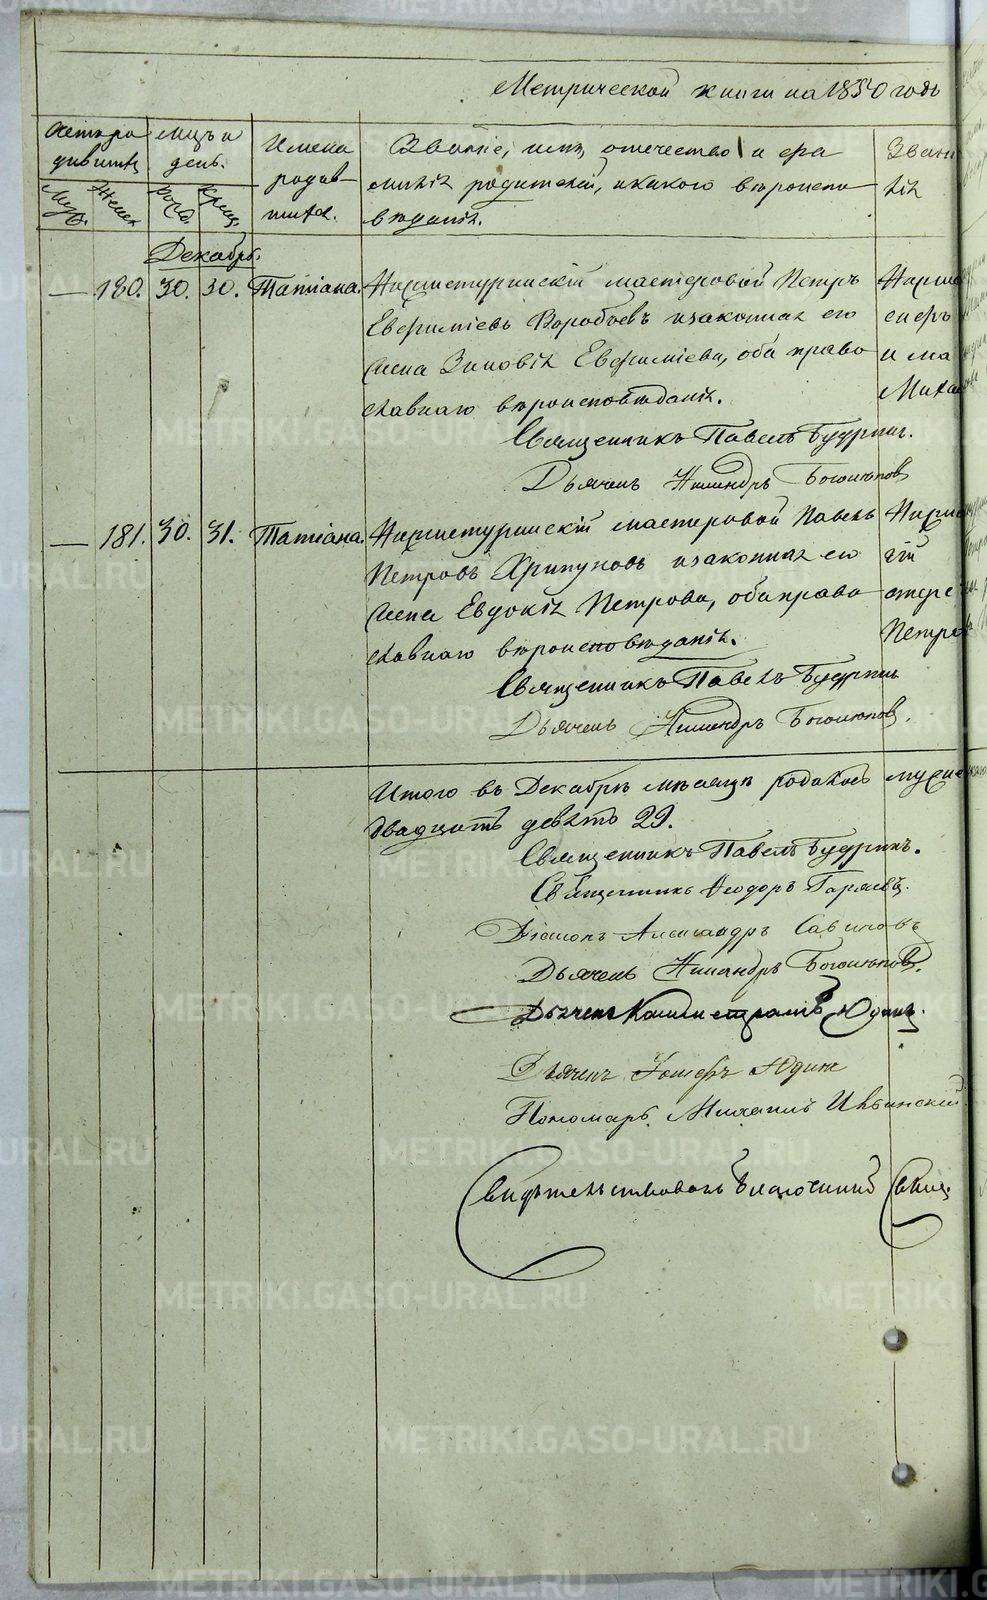 Метрической книги на 1850 годъ
Счетъ родившихся
Мцъ и день.
Имена родившихся.
Званіе, имя, отечество и фамилія родителей, и какого вѣроисповѣданія.
Звані
Муж.
Женск
Рожд.
Крещ.
Декабрь.
— 180. 30. 30. Татіана. Нижнетуринскій мастеровой Петръ
Евфиміевъ Воробьевъ и законная его
жена Зиновія Евфиміева, оба право
славнаго вѣроисповѣданія.
Священникъ Павелъ Будринъ.
Дьячекъ Никандръ Богомоловъ
— 181. 30. 31. Татіана. Нижнетуринскій мастеровой Павелъ
Петровъ Хрипуновъ и законная его
жена Евдокія Петрова, оба право
славнаго вѣроисповѣданія.
Священникъ Павелъ Будринъ
Дьячекъ Никандръ
Итого въ Декабрѣ мѣсяцѣ родилось
двадцать девять 29.
Священникъ Павелъ Будринъ.
Священникъ Феодоръ
Діаконъ Александръ Савиновъ
Дьячекъ Никандръ
Дьячекъ Каллистратъ Юдинъ.
Дьячекъ Іосифъ Юдинъ
Пономарь Михаилъ
Свидѣтельствовалъ Благочинный Свящ.
METRIKI.GASO-URAL.RU